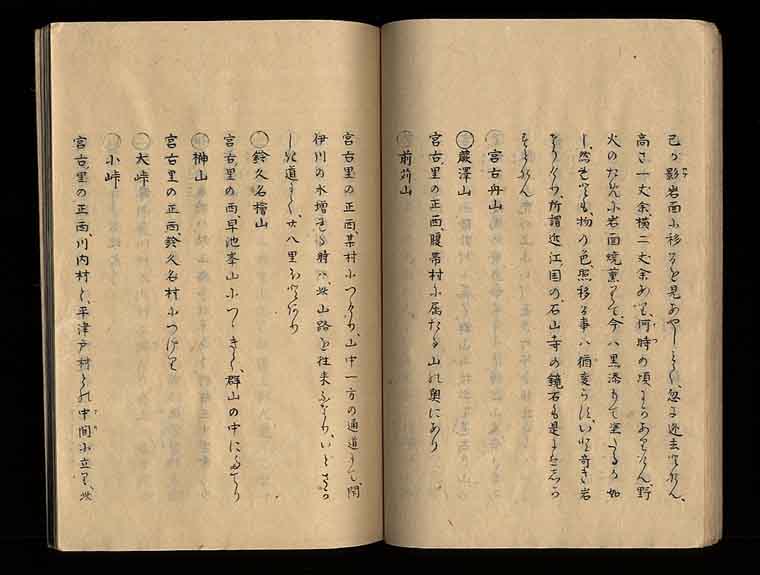 己が影岩面に移るを見あやしとし、忽チ逃去りけん、
高さ一丈余、横二丈余あり、何時の頃にかありけん、野
火のために岩面焼薫りて、今ハ黒漆もて塗たるが如
し、然せども、物の色、照移る事ハ猶変らず、いと奇き岩
なりけり、所謂近江国の石山寺の鏡石も是に
〇宮古舟山
〇蕨澤山
宮古里の正西、腹帯村に属たる山の奥にあり
〇前苅山
宮古里の正西、某村につゞけり、山中一方の通道にて、閇
伊川の水増せる時ハ、此山路を往来ふなり、いとさか
しき道にて、廿八里
〇鈴久名檜山
宮古里の西、早池峯山につゞきて、群山の中に
〇榊山
宮古里の正西、鈴久名村につゞけり
〇大峠
〇小峠
宮古里の正西、川内村と、平津戸村との中間に立り、此